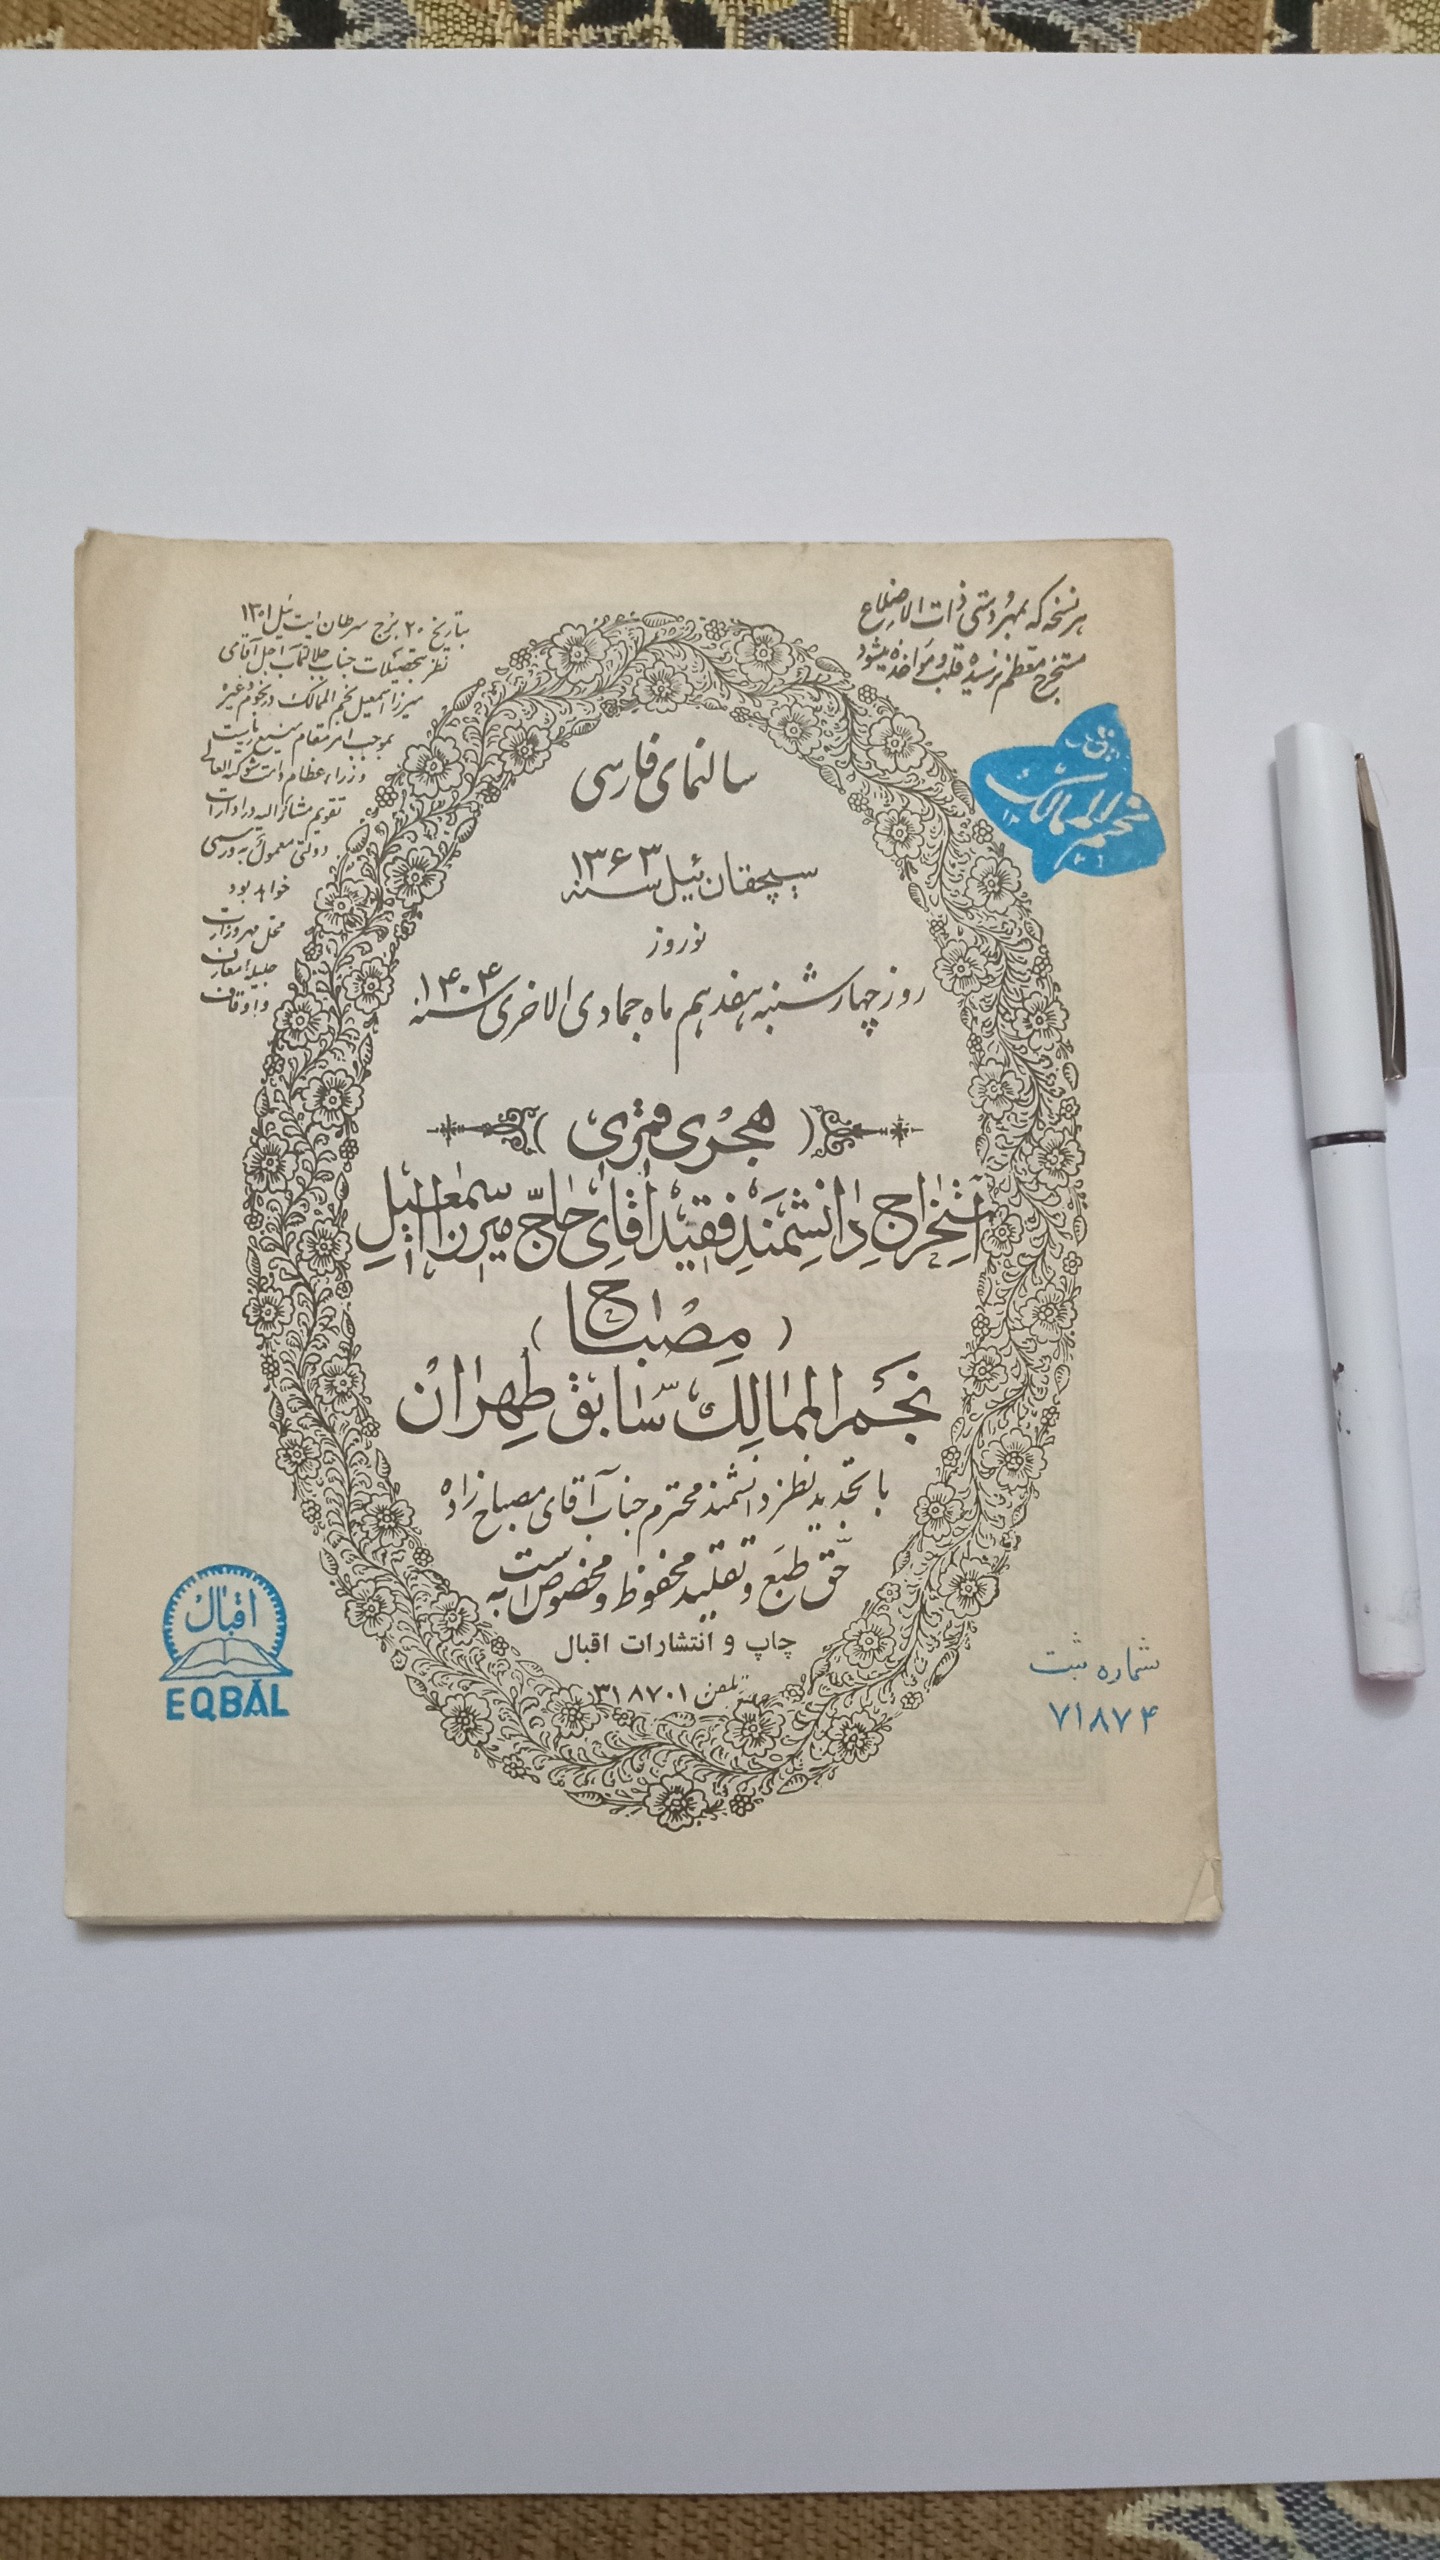 هر نسخه که بمهر و دستی ذات الاضلاع
مستخرج معظم نرسیده قلب و مؤاخذه میشود
نجم الممالک
بتاریخ ۲۰ برج سرطان ایت ئیل ۱۳۰۱
نظر بتحصیلات جناب جلالتمآب اجل آقای
میرزا اسمعیل نجم الممالک در نجوم و غیره
بموجب امر مقام منیع ریاست
وزراء عظام دامت شوکته العالی
تقویم مشارالیه در ادارات
دولتی معمول به و رسمی
خواهد بود
محل مهر وزارت
جلیله معارف
و اوقاف
سالنمای فارسی
سیچقان ئیل سنه ۱۳۶۳
نوروز
روز چهارشنبه هفدهم ماه جمادی الاخری سنه ۱۴۰۴
(هجری قمری)
استخراج دانشمند فقید آقای حاج میرزا اسمعیل
(مصباح)
نجم الممالک سابق طهران
با تجدید نظر دانشمند محترم جناب آقای مصباح زاده
حق طبع و تقلید محفوظ و مخصوص است به
چاپ و انتشارات اقبال
تلفن ۳۱۸۷۰۱
اقبال
EQBAL
شماره ثبت
۷۱۸۷۴